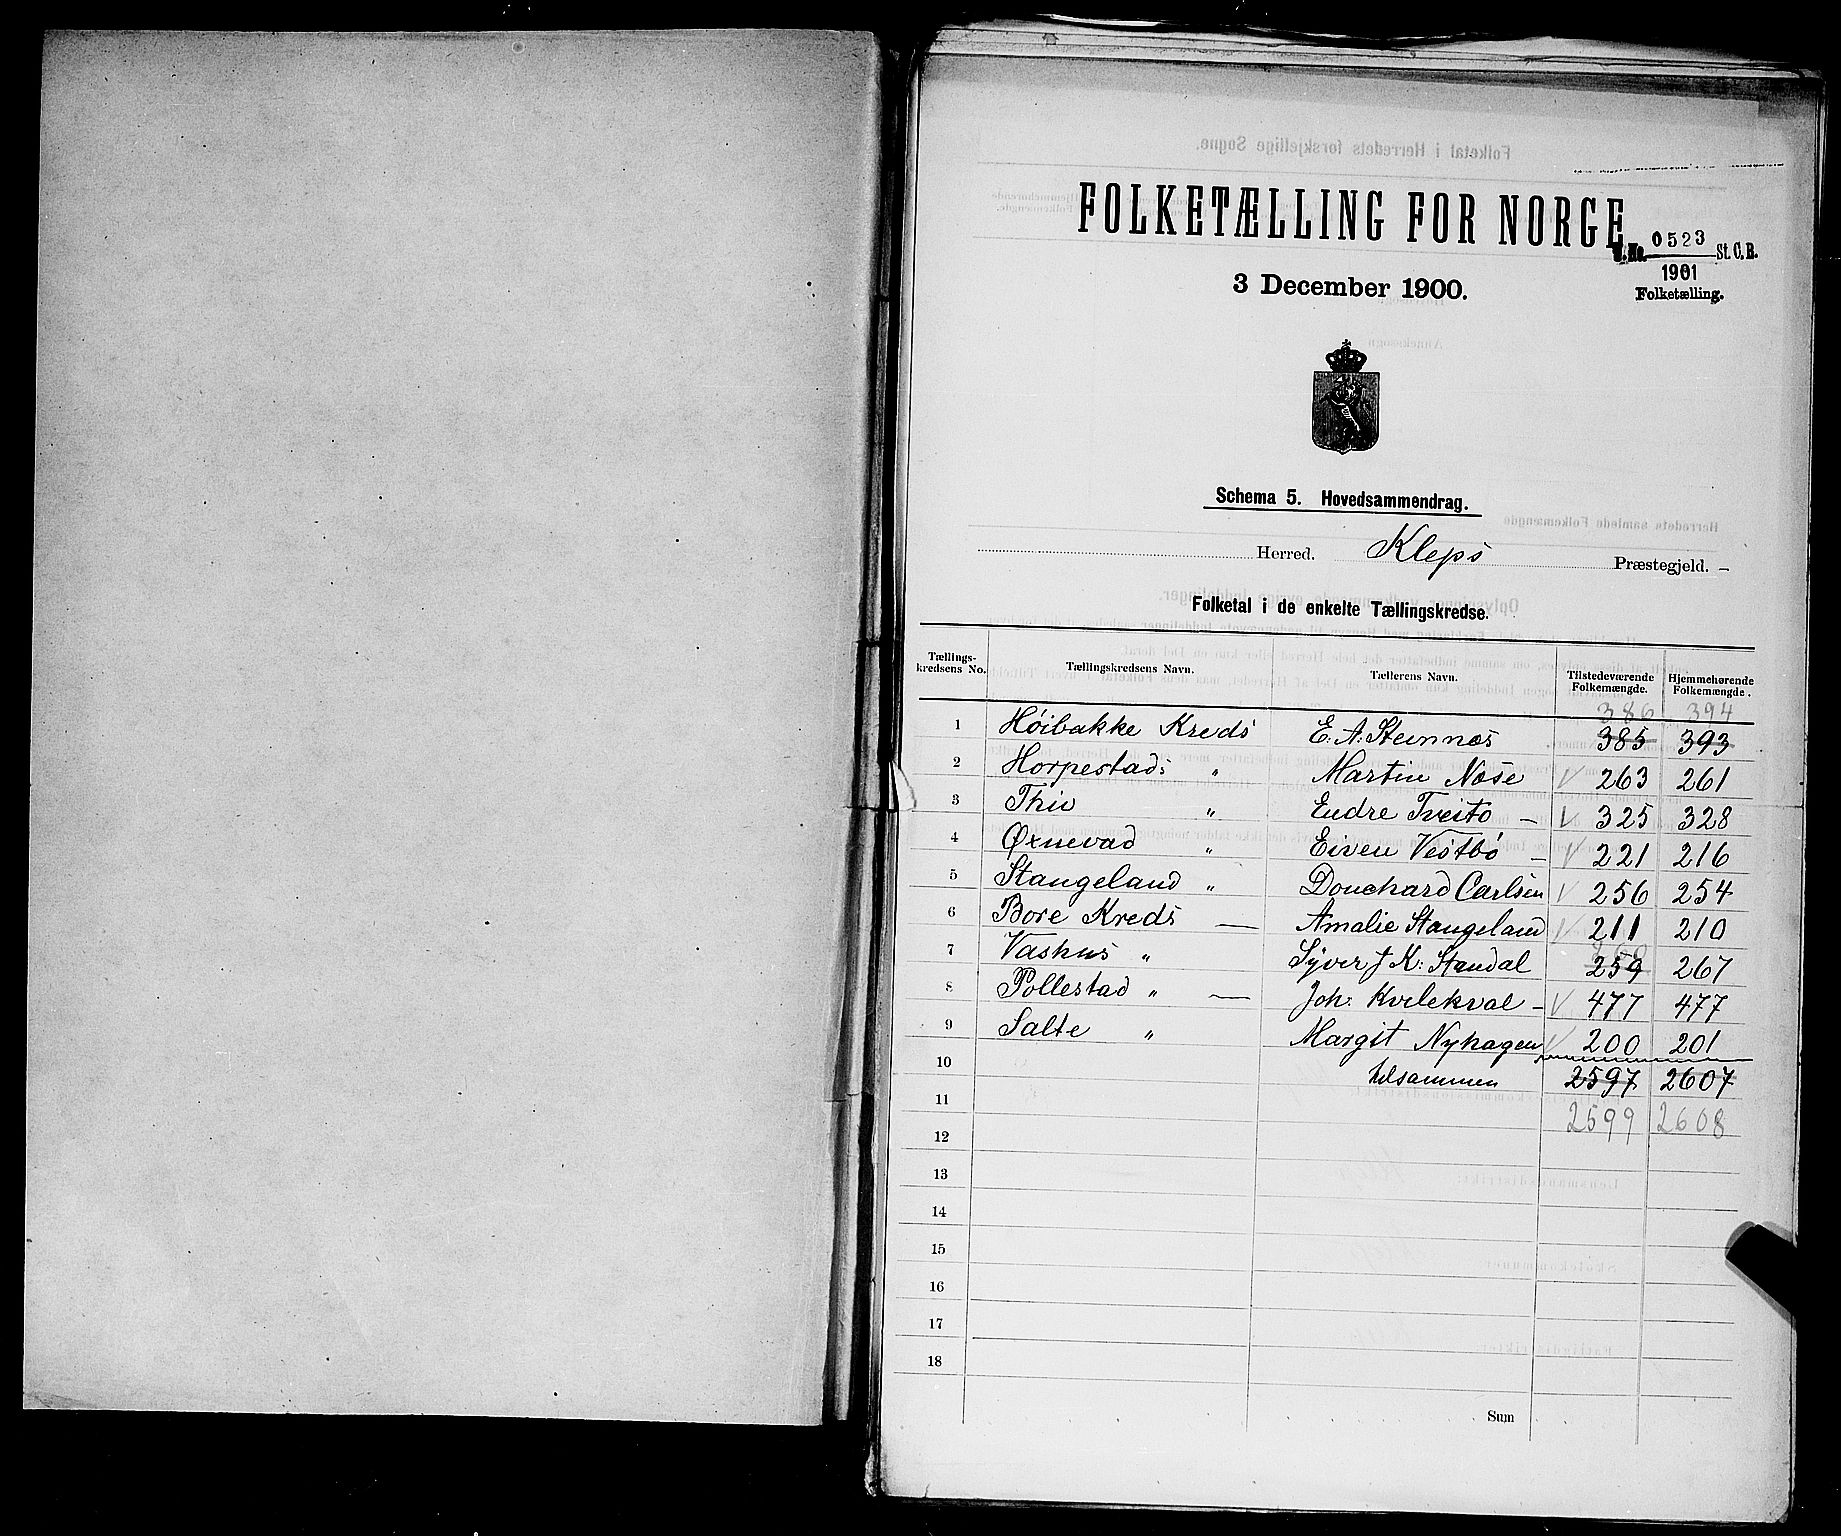 FOLKETÆLLING FOR NORGE
J. No. 0523 St. C. B.
1901
Folketælling.
3 December 1900.
Schema 5. Hovedsammendrag.
Herred. Klepps Præstegjeld. –
Folketal i de enkelte Tællingskredse.
Tællings-kredsens No. Tællingskredsens Navn. Tællerens Navn. Tilstedeværende Folkemængde. Hjemmehørende Folkemængde.
386 394
1 Höibakke Kreds E. A. Steinnes 385 393
2 Horpestads „ Martin Næse V 263 261
3 Thu „ Endre Tveito – V 325 328
4 Øxnevad „ Eiven Vestbö – V 221 216
5 Stangeland „ Bouchard Carlsen V 256 254
6 Bore Kreds — Amalie Stangeland V 211 210
260
7 Vashus „ Syver J K: Standal 259 267
8 Pollestad „ — Joh: Kvilekval – V 477 477
9 Salte „ Margit Nyhagen V 200 201
10 tilsammen 2597 2607
11 2599 2608
12
13
14
15
16
17
18
Sum